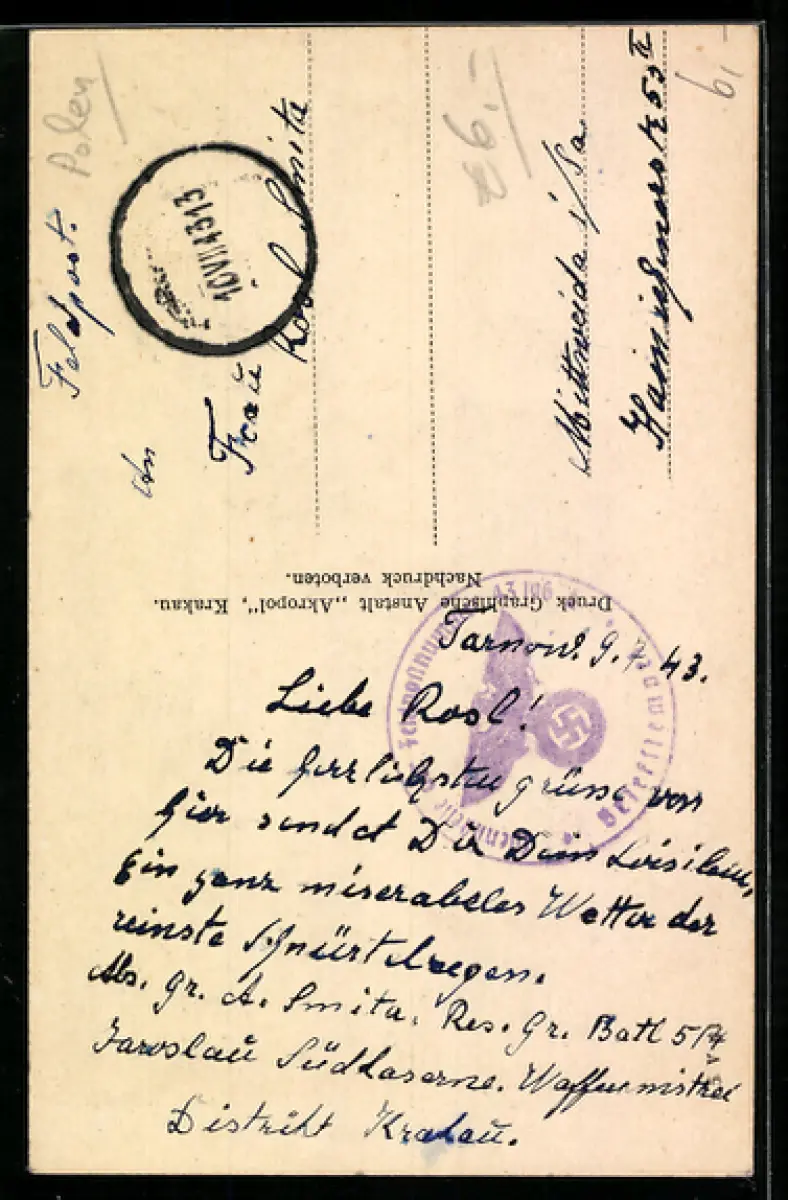 Feldpost.
Polen
An
Frau
Rosl Smita
10 VII 43 13
26.-
Mittweida i/Sa.
Hainichenerstr 53 II
6,-
Druck Graphische Anstalt „Akropol", Krakau.
Nachdruck verboten.
Briefstempel
Tarnow. 9. 7. 43.
Liebe Rosl!
Die herzlichsten grüsse von
hier sendet Dir Dein
Ein ganz miserables Wetter der
reinste Schnürlregen.
Abs. Gr. A. Smita, Res. Gr. Batl
Jaroslau Südkaserne. Waffenmstrei
Distrikt Krakau.